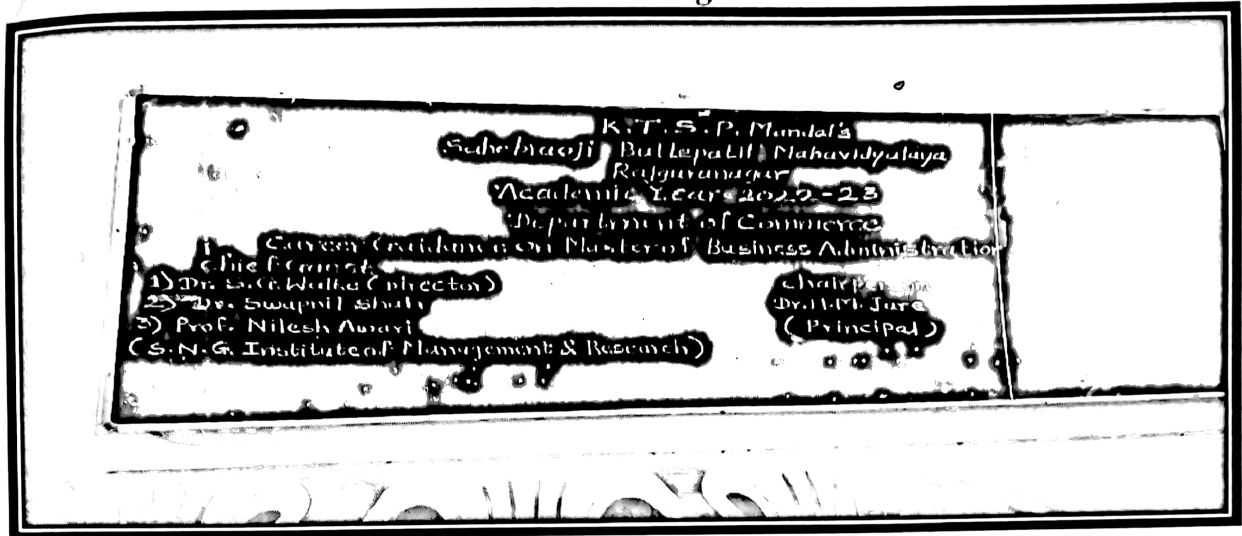 K.T.S.P. Mandal's
Sahebraoji Buttepatil Mahavidyalaya
Rajgurunagar
Academic Year 2022-23
Department of Commerce
Career Guidance on Master of Business Administration
Chief Guest
1) Dr. S.G. Walke (Director)
2) Dr. Swapnil Shah
3) Prof. Nilesh Awari
(S.N.G. Institute of Management & Research)
Chairperson
Dr. H.M. Jare
(Principal)